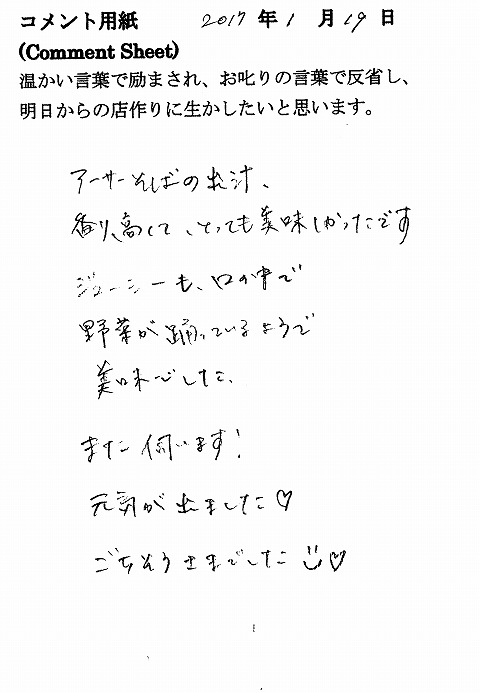 コメント用紙 2017年1月19日
(Comment Sheet)
温かい言葉で励まされ、お叱りの言葉で反省し、
明日からの店作りに生かしたいと思います。
アーサーそばの出汁、
香り高くて、とっても美味しかったです
ジューシーも、口の中で
野菜が踊っているようで
美味でした、
また伺います!
元気が出ました♡
ごちそうさまでした☺♡